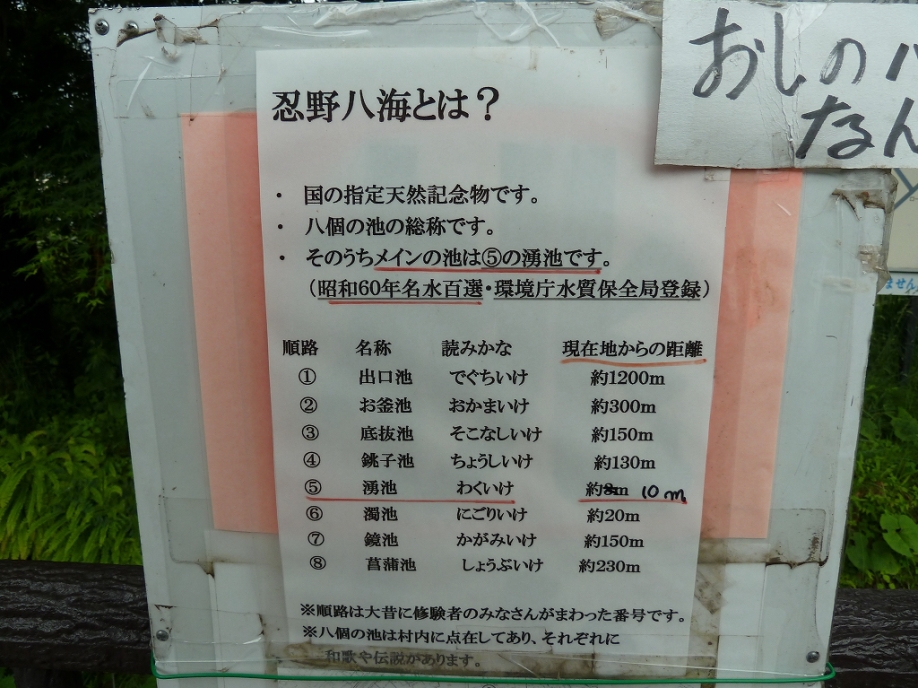 おしのハ
なん
忍野八海とは？
・ 国の指定天然記念物です。
・ 八個の池の総称です。
・ そのうちメインの池は⑤の湧池です。
（昭和60年名水百選・環境庁水質保全局登録）
順路 名称 読みかな 現在地からの距離
① 出口池 でぐちいけ 約1200m
② お釜池 おかまいけ 約300m
③ 底抜池 そこなしいけ 約150m
④ 銚子池 ちょうしいけ 約130m
⑤ 湧池 わくいけ 約8m 10m
⑥ 濁池 にごりいけ 約20m
⑦ 鏡池 かがみいけ 約150m
⑧ 菖蒲池 しょうぶいけ 約230m
※順路は大昔に修験者のみなさんがまわった番号です。
※八個の池は村内に点在してあり、それぞれに
和歌や伝説があります。